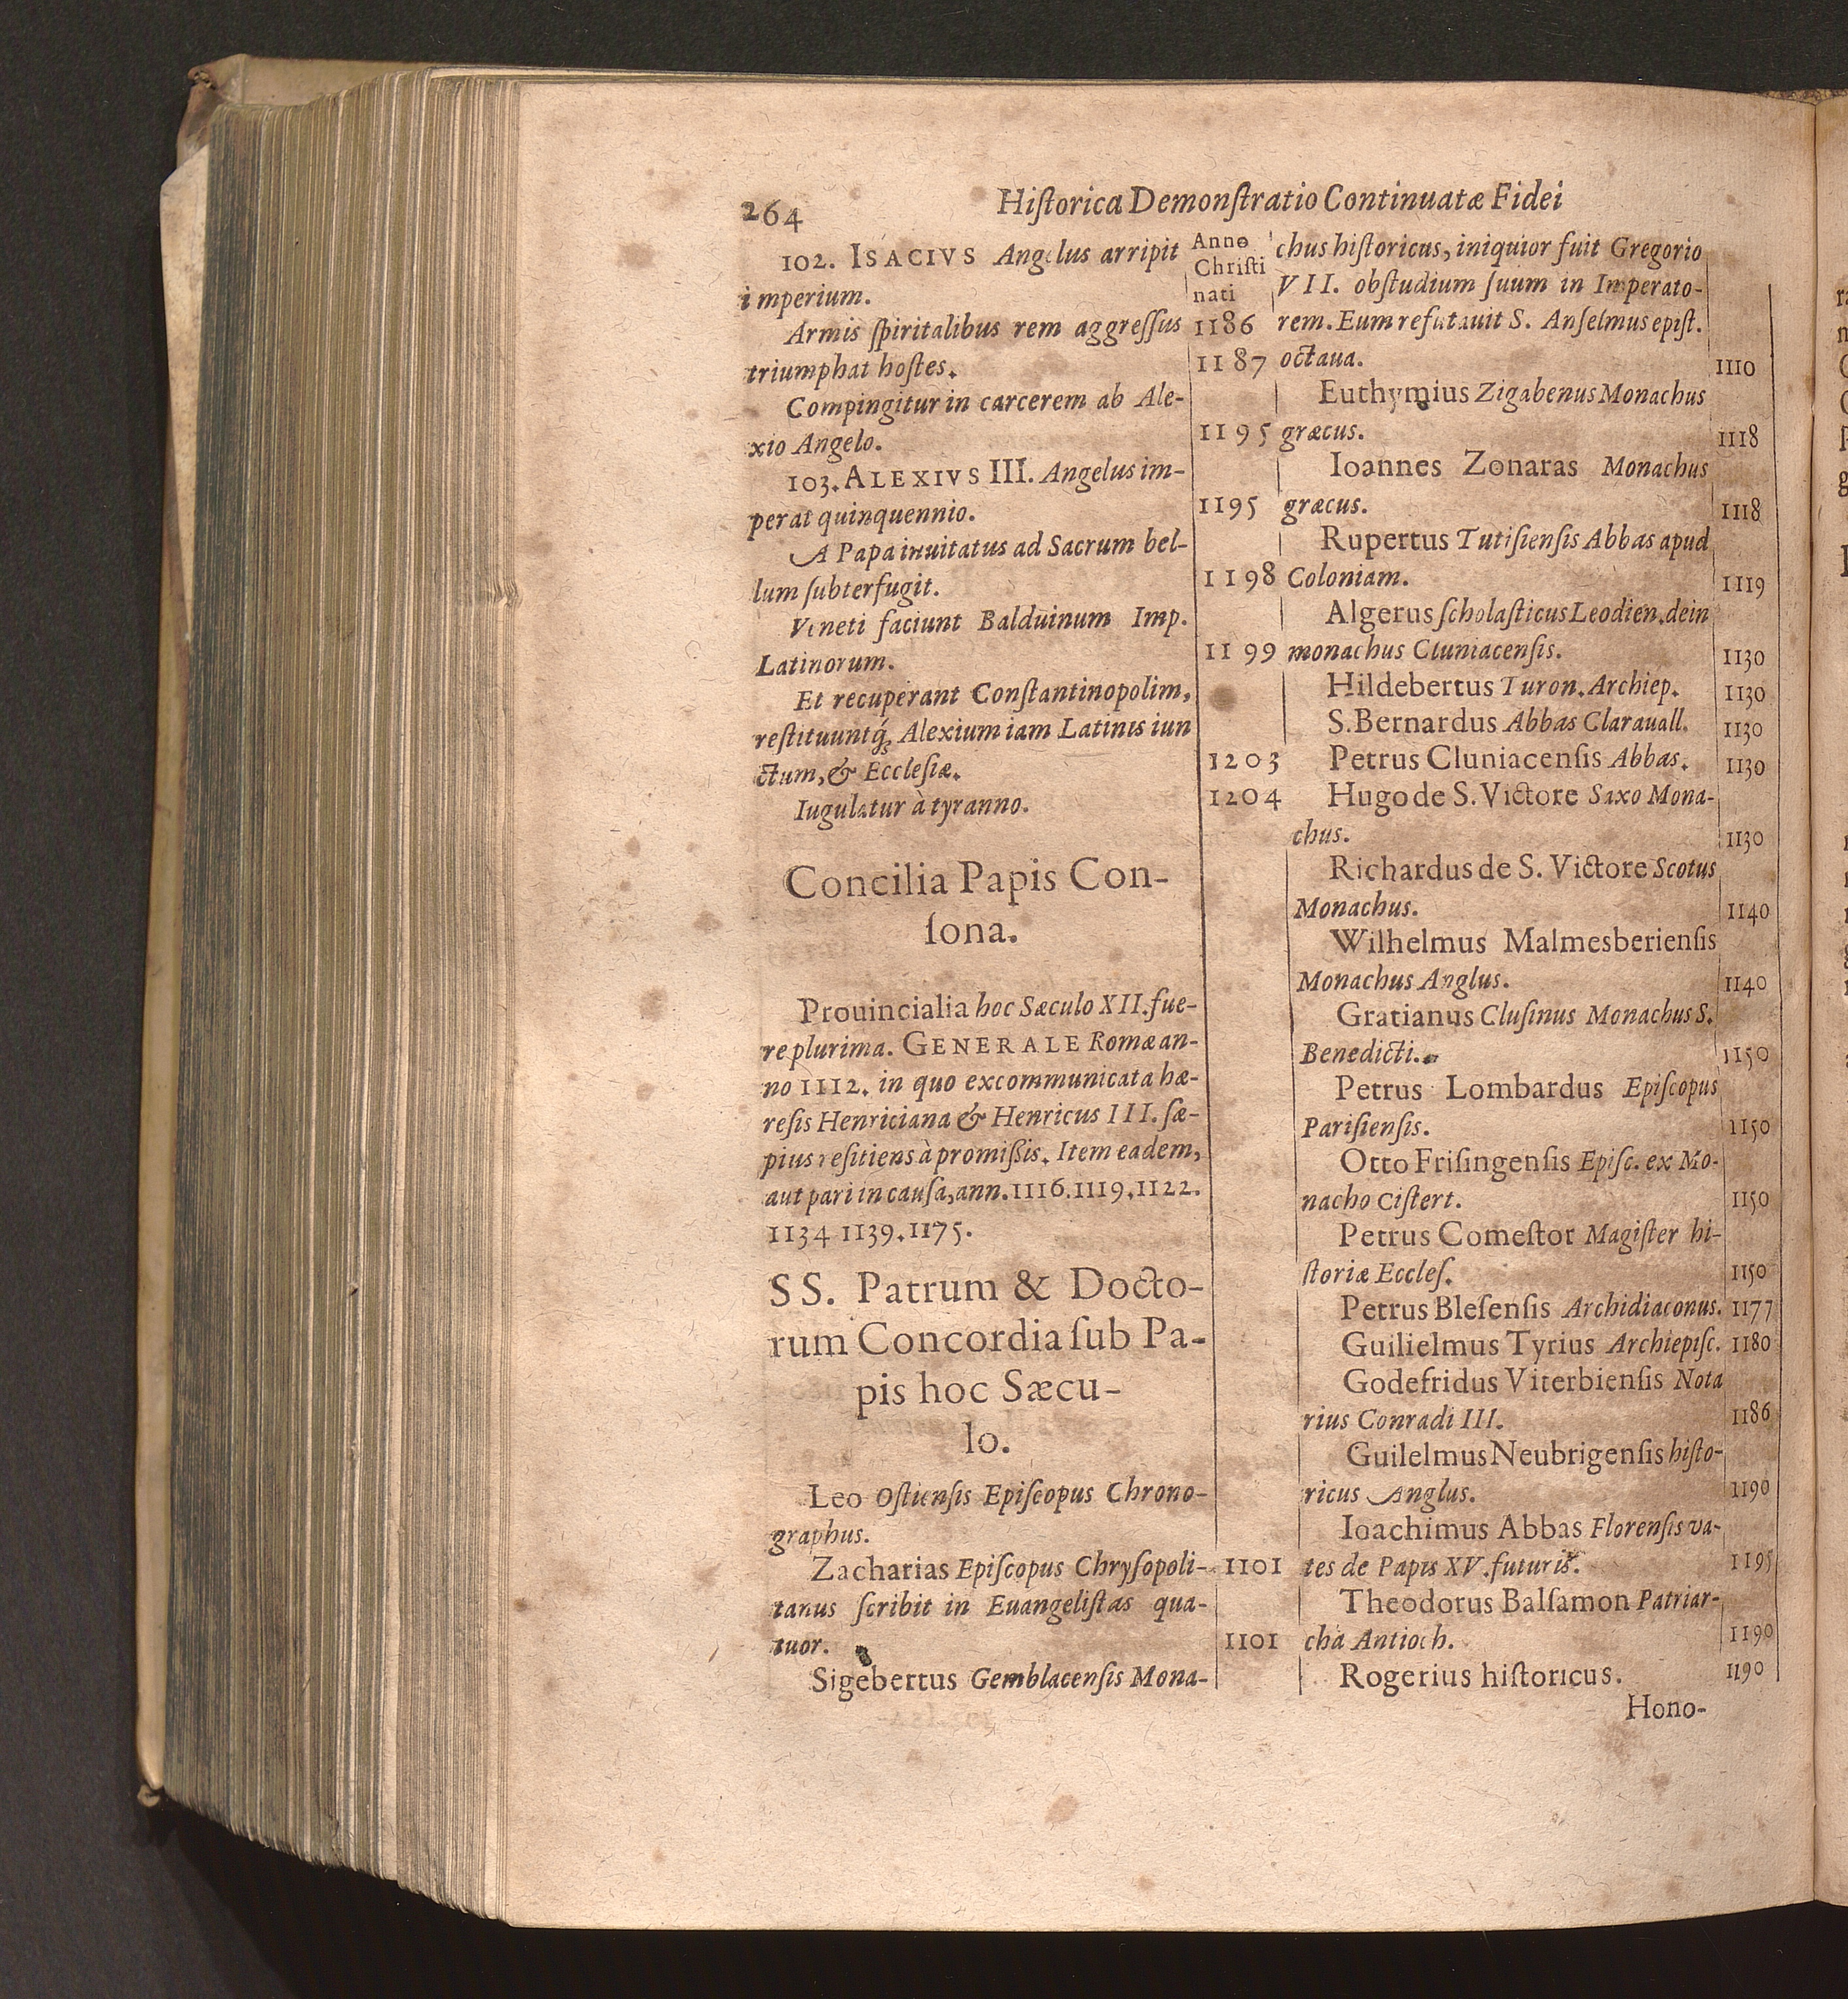 264 Hiſtorica Demonſtratio Continuatæ Fidei
102. ISACIVS Angelus arripit
imperium.
Armis ſpiritalibus rem aggreſſus
triumphat hoſtes.
Compingitur in carcerem ab Ale-
xio Angelo.
103. ALEXIVS III. Angelus im-
perat quinquennio.
A Papa inuitatus ad Sacrum bel-
lum ſubterfugit.
Veneti faciunt Balduinum Imp.
Latinorum.
Et recuperant Conſtantinopolim,
reſtituuntq́; Alexium iam Latinis iun
ctum, & Eccleſiæ.
Iugulatur à tyranno.
Concilia Papis Con-
ſona.
Prouincialia hoc Sæculo XII. fue-
re plurima. GENERALE Romæ an-
no 1112. in quo excommunicata hæ-
reſis Henriciana & Henricus III. ſæ-
pius reſitiens à promiſſis. Item eadem,
aut pari in cauſa, ann. 1116. 1119. 1122.
1134 1139. 1175.
SS. Patrum & Docto-
rum Concordia ſub Pa-
pis hoc Sæcu-
lo.
Leo Oſtienſis Epiſcopus Chrono-
graphus.
Zacharias Epiſcopus Chryſopoli-
tanus ſcribit in Euangeliſtas qua-
tuor.
Sigebertus Gemblacenſis Mona-
Anno
Chriſti
nati
1186
1187
1195
1195
1198
1199
1203
1204
1101
1101
chus hiſtoricus, iniquior fuit Gregorio
VII. ob ſtudium ſuum in Imperato-
rem. Eum refutauit S. Anſelmus epiſt.
octaua. 1110
Euthymius Zigabenus Monachus
græcus. 1118
Ioannes Zonaras Monachus
græcus. 1118
Rupertus Tutiſienſis Abbas apud
Coloniam. 1119
Algerus ſcholaſticus Leodien. dein
monachus Cluniacenſis. 1130
Hildebertus Turon. Archiep. 1130
S. Bernardus Abbas Clarauall. 1130
Petrus Cluniacenſis Abbas. 1130
Hugo de S. Victore Saxo Mona-
chus. 1130
Richardus de S. Victore Scotus
Monachus. 1140
Wilhelmus Malmesberienſis
Monachus Anglus. 1140
Gratianus Cluſinus Monachus S.
Benedicti. 1150
Petrus Lombardus Epiſcopus
Pariſienſis. 1150
Otto Friſingenſis Epiſc. ex Mo-
nacho Ciſtert. 1150
Petrus Comeſtor Magiſter hi-
ſtoriæ Eccleſ. 1150
Petrus Bleſenſis Archidiaconus. 1177
Guilielmus Tyrius Archiepiſc. 1180
Godefridus Viterbienſis Nota
rius Conradi III. 1186
Guilelmus Neubrigenſis hiſto-
ricus Anglus. 1190
Ioachimus Abbas Florenſis va-
tes de Papis XV. futuris. 1195
Theodorus Balſamon Patriar-
cha Antioch. 1190
Rogerius hiſtoricus. 1190
Hono-